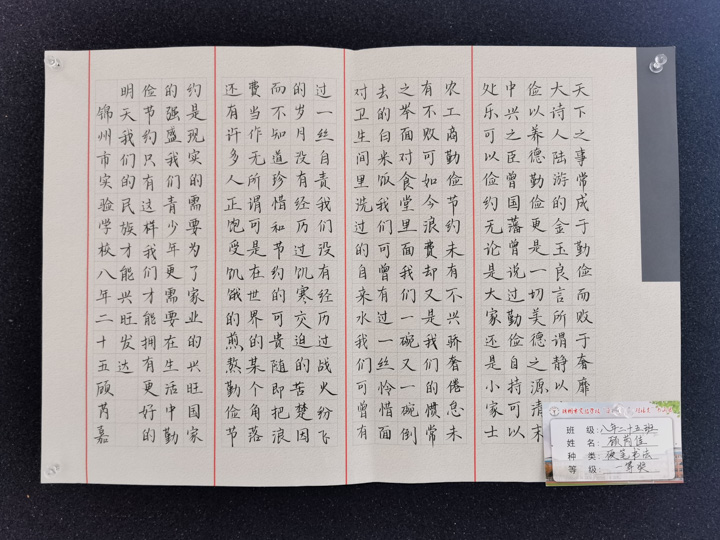 天下之事常成于勤俭而败于奢靡
大诗人陆游的金玉良言所谓静以
俭以养德勤俭更是一切美德之源清末
中兴之臣曾国藩曾说过勤俭自持可以
处乐可以俭约无论是大家还是小家士
农工商勤俭节约未有不兴骄奢倦怠未
有不败可如今浪费却又是我们的惯常
之举面对食堂里面我们一碗又一碗倒
去的白米饭我们可曾有过一丝怜惜面
对卫生间里洗过的自来水我们可曾有
过一丝自责我们没有经历过战火纷飞
的岁月没有经历过饥寒交迫的苦楚因
而不知道珍惜和节约的可贵随即把浪
费当作无所谓可是在世界的某个角落
还有许多人正饱受饥饿的煎熬勤俭节
约是现实的需要为了家业的兴旺国家
的强盛我们青少年更需要在生活中勤
俭节约只有这样我们才能拥有更好的
明天我们的民族才能兴旺发达
锦州市实验学校八年二十五顾芮嘉
锦州市实验学校
班 级:八年二十五班
姓 名:顾芮佳
种 类:硬笔书法
等 级:一等奖